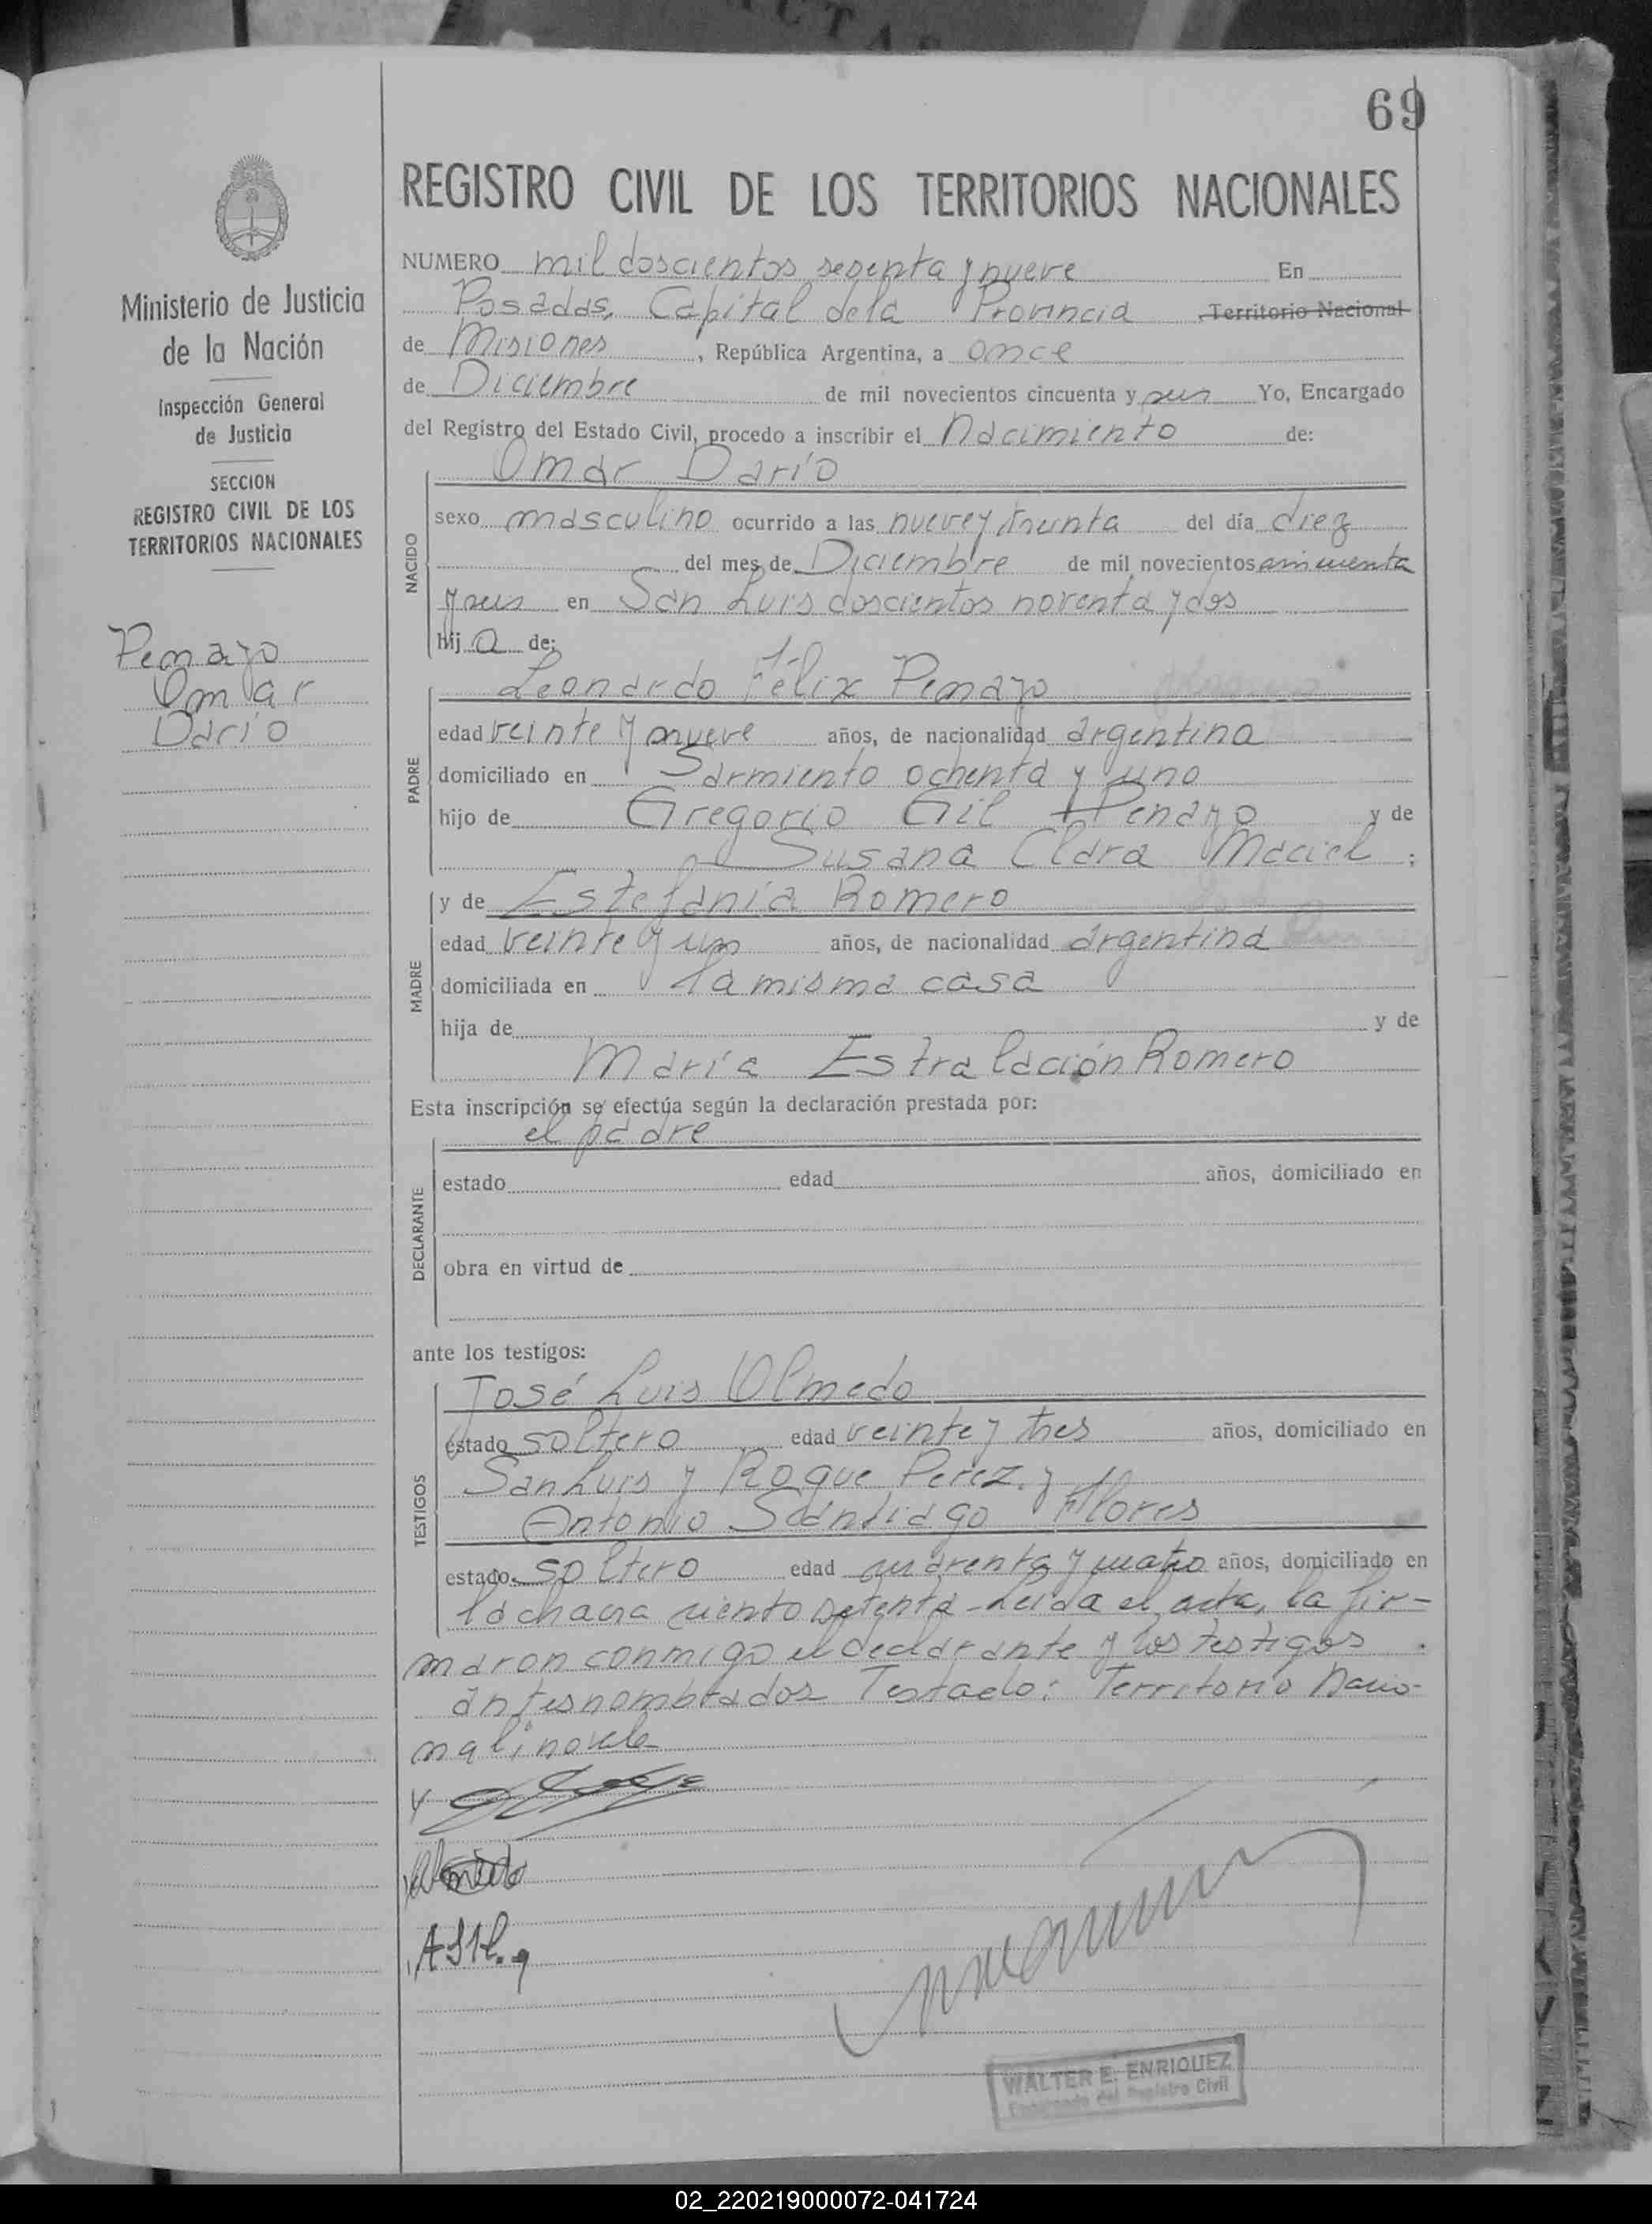 69
REGISTRO CIVIL DE LOS TERRITORIOS NACIONALES
Ministerio de Justicia
de la Nación
Inspección General
de Justicia
SECCION
REGISTRO CIVIL DE LOS
TERRITORIOS NACIONALES
Penayo
Omar
Darío
NUMERO mil doscientos sesenta y nueve En
Posadas, Capital de la Provincia Territorio Nacional
de Misiones, República Argentina, a once
de Diciembre de mil novecientos cincuenta y seis Yo, Encargado
del Registro del Estado Civil, procedo a inscribir el Nacimiento de:
Omar Darío
NACIDO
sexo masculino ocurrido a las nueve y treinta del día diez
del mes de Diciembre de mil novecientos cincuenta
y seis en San Luis doscientos noventa y dos
hij o de:
Leonardo Félix Penayo
PADRE
edad veinte y nueve años, de nacionalidad argentina
domiciliado en Sarmiento ochenta y uno
hijo de Gregorio Gil Penayo y de
Susana Clara Maciel ;
y de Estefanía Romero
MADRE
edad veinte y un años, de nacionalidad argentina
domiciliada en la misma casa
hija de y de
María Estralación Romero
Esta inscripción se efectúa según la declaración prestada por:
el padre
DECLARANTE
estado edad años, domiciliado en
obra en virtud de
ante los testigos:
José Luis Olmedo
TESTIGOS
estado soltero edad veinte y tres años, domiciliado en
San Luis y Roque Perez. y
Antonio Santiago Flores
estado soltero edad cuarenta y cuatro años, domiciliado en
la chacra ciento setenta - Leida el acta, la fir-
maron conmigo el declarante y los testigos
antesnombrados Testado: Territorio Nacio-
nal; no vale
Olmedo
WALTER E. ENRIQUEZ
Encargado del Registro Civil
02_220219000072-041724